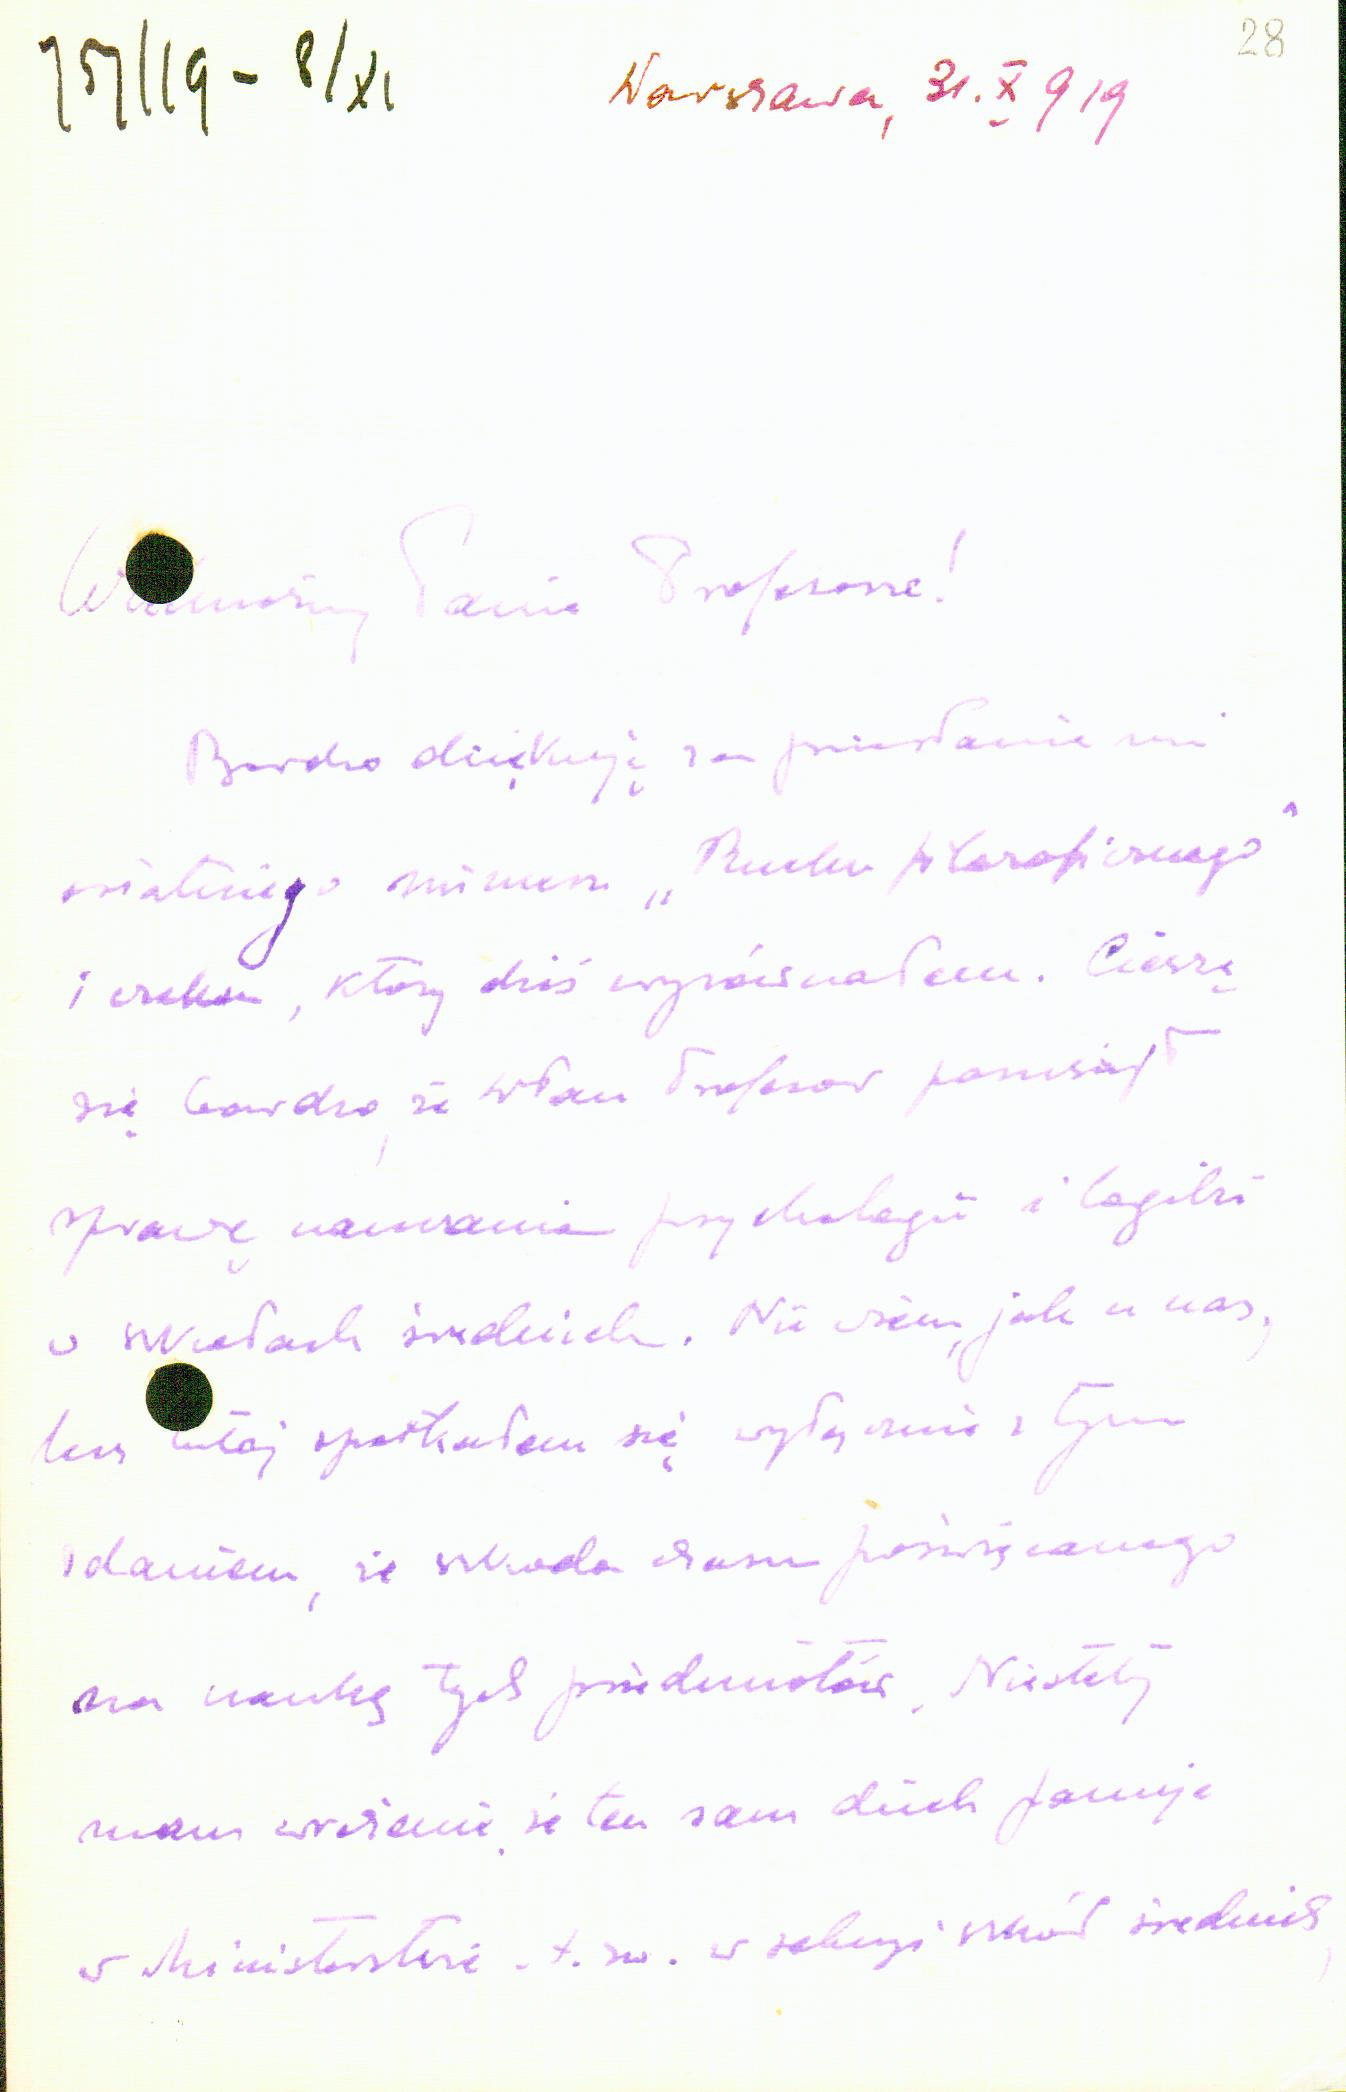 28
757/19 - 8/XI
Warszawa, 31. X 919
Wielmożny Panie Profesorze!
Bardzo dziękuję za przesłanie mi
ostatniego numeru „Ruchu filozoficznego"
i czeku, który dziś wyrównałem. Cieszę
się bardzo, że WPan Profesor poruszył
sprawę nauczania psychologii i logiki
w szkołach średnich. Nie wiem, jak u nas,
lecz tutaj spotkałem się wyłącznie z tym
zdaniem, że szkoda czasu poświęcanego
na naukę tych przedmiotów. Niestety
mam wrażenie, że ten sam duch panuje
w Ministerstwie t. zn. w sekcyi szkół średnich,